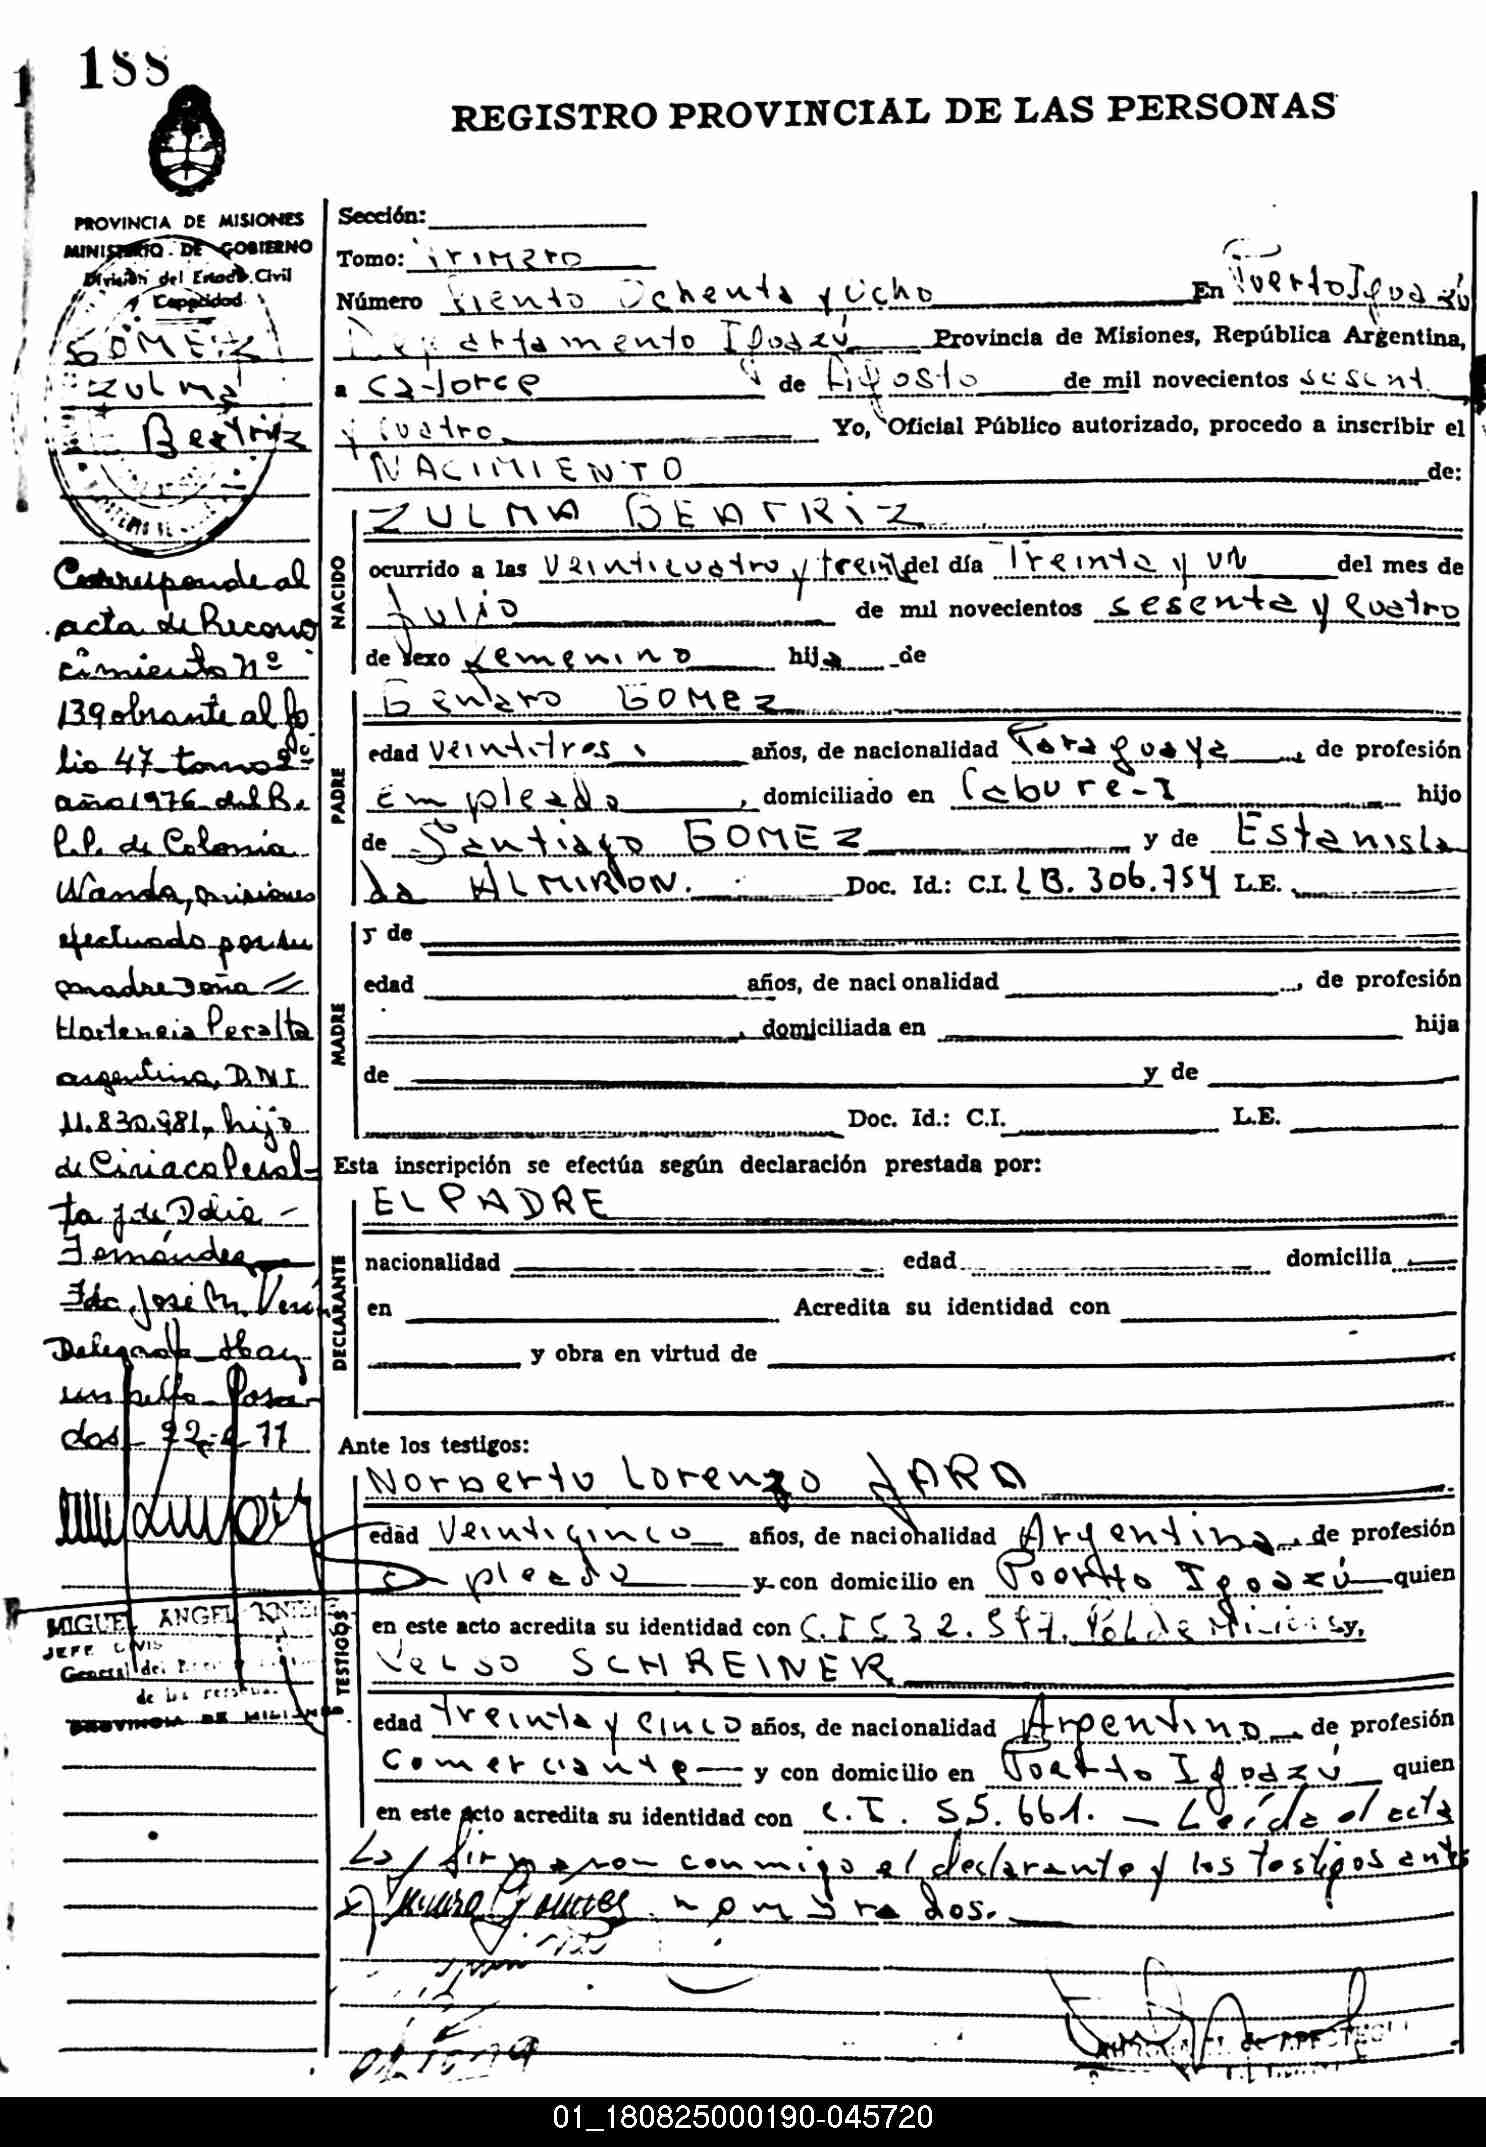 188
REGISTRO PROVINCIAL DE LAS PERSONAS
PROVINCIA DE MISIONES
MINISTERIO DE GOBIERNO
División del Estado Civil
y Capacidad
GOMEZ
ZULMA
Beatriz
Corresponde al
acta de Recono
cimiento Nº
139 obrante al fo
lio 47 tomo 2º
año 1976 del R.
P.P. de Colonia
Wanda, misiones
efectuado por su
madre Doña
Hortencia Peralta
argentina, D.N.I.
11.830.981, hija
de Ciriaco Peral-
ta y de Delia -
Fernández
Fdo José M. Verón
Delegado Hay
un sello Posa-
das
MIGUEL ANGEL
JEFE
General del
de las Personas
PROVINCIA DE MISIONES
Sección:
Tomo: Primero
Número Ciento Ochenta y Ocho En Puerto Iguazú
Departamento Iguazú Provincia de Misiones, República Argentina,
a catorce de Agosto de mil novecientos sesent.
y cuatro Yo, Oficial Público autorizado, procedo a inscribir el
NACIMIENTO de:
NACIDO
ZULMA BEATRIZ
ocurrido a las Veinticuatro y trein del día Treinta y un del mes de
Julio de mil novecientos sesenta y cuatro
de sexo femenino hija de
PADRE
Genaro GOMEZ
edad veintitres años, de nacionalidad Paraguaya, de profesión
empleado, domiciliado en Cabure-I hijo
de Santiago GOMEZ y de Estanisla
da ALMIRON. Doc. Id.: C.I. LB. 306.754 L.E.
MADRE
y de
edad años, de nacionalidad , de profesión
, domiciliada en hija
de y de
Doc. Id.: C.I. L.E.
Esta inscripción se efectúa según declaración prestada por:
DECLARANTE
EL PADRE
nacionalidad edad domicilia
en Acredita su identidad con
y obra en virtud de
Ante los testigos:
TESTIGOS
Norberto Lorenzo JARA
edad Veinticinco años, de nacionalidad Argentina, de profesión
empleado y con domicilio en Puerto Iguazú quien
en este acto acredita su identidad con C.I 532.597. Pol de Misiones y,
Celso SCHREINER
edad treinta y cinco años, de nacionalidad Argentino, de profesión
Comerciante y con domicilio en Puerto Iguazú quien
en este acto acredita su identidad con C.I. 55.661. — Leída el acta
La firmaron conmigo el declarante y los testigos antes
nombrados.
01_180825000190-045720